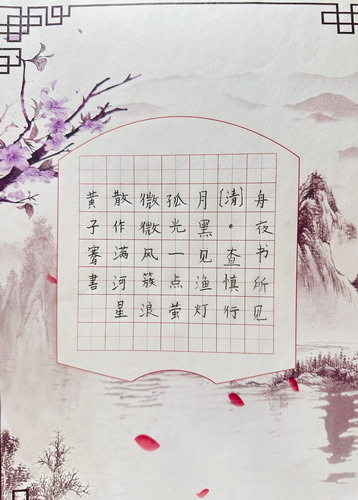 舟夜书所见
[清]·查慎行
月黑见渔灯
孤光一点萤
微微风簇浪
散作满河星
黄子骞書